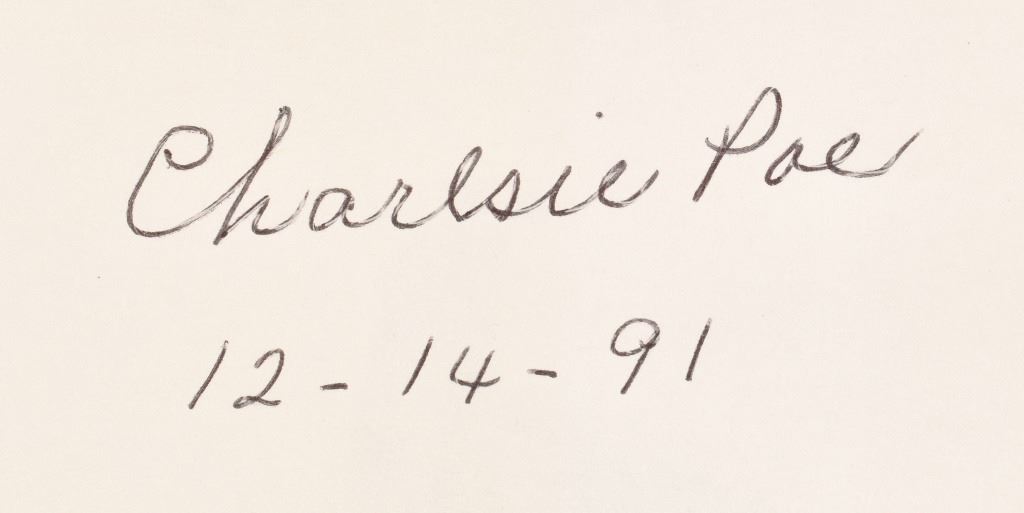 Charlsie Poe
12-14-91